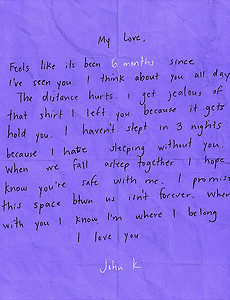 My Love,
Feels like its been 6 months since
i've seen you. I think about you all day
The distance hurts. i get jealous of
that shirt I left you because it gets
hold you. I haven't slept in 3 nights
because I hate sleeping without you.
When we fall asleep together I hope
know you're safe with me. I promise
this space btwn us isn't forever. When
with you I know I'm where I belong
I love you.
John K